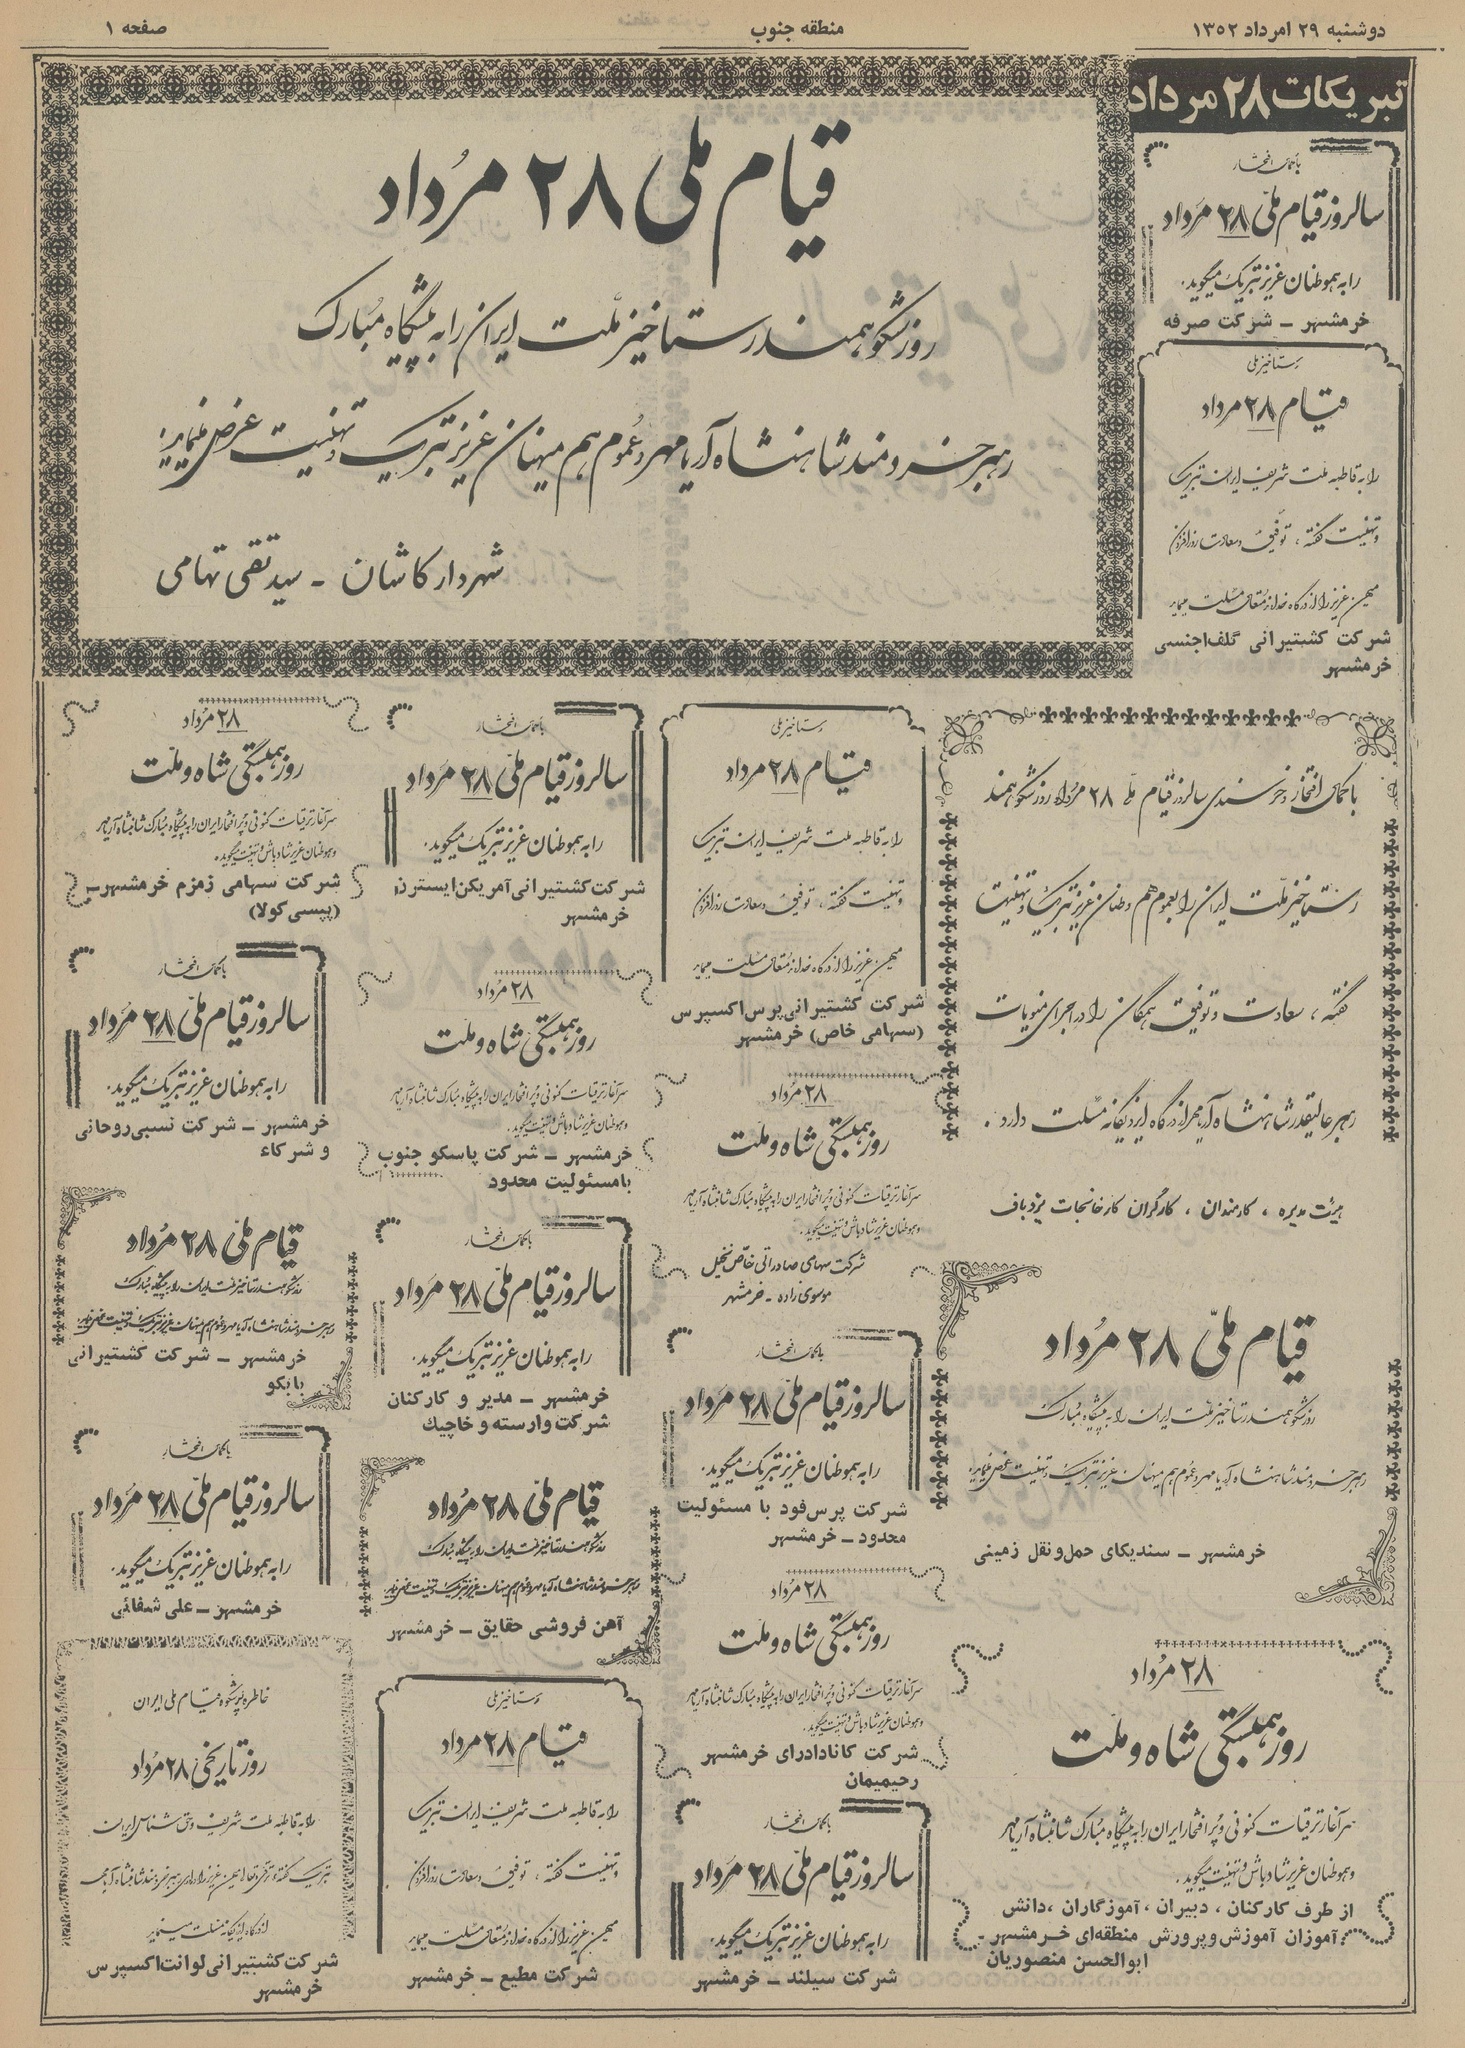 دوشنبه ۲۹ امرداد ۱۳۵۲
منطقه جنوب
صفحه ۱
تبریکات ۲۸ مرداد
با کمال افتخار
سالروز قیام ملّی ۲۸ مرداد
را به هموطنان عزیز تبریک میگوید.
خرمشهر – شرکت صرفه
رستاخیز ملی
قیام ۲۸ مرداد
را به قاطبه ملت شریف ایران تبریک
و تهنیت گفته ، توفیق و سعادت روزافزون
میهن عزیز را از درگاه خداوند متعال مسئلت مینماید
شرکت کشتیرانی گلف اجنسی
خرمشهر
قیام ملی ۲۸ مرداد
روز شکوهمند رستاخیز ملّت ایران را به پیشگاه مبارک
رهبر خردمند شاهنشاه آریامهر و عموم هم میهنان عزیز تبریک و تهنیت عرض مینماید.
شهردار کاشان – سید تقی تهامی
با کمال افتخار و خرسندی سالروز قیام ملّی ۲۸ مرداد روز شکوهمند
رستاخیز ملّت ایران را بعموم هم وطنان عزیز تبریک و تهنیت
گفته ، سعادت و توفیق همگان را در اجرای منویات
رهبر عالیقدر شاهنشاه آریامهر از درگاه ایزد یگانه مسئلت دارد .
هیئت مدیره ، کارمندان ، کارگران کارخانجات یزدباف
قیام ملّی ۲۸ مرداد
روز شکوهمند رستاخیز ملّت ایران را به پیشگاه مبارک
رهبر خردمند شاهنشاه آریامهر و عموم هم میهنان عزیز تبریک و تهنیت عرض مینماید.
خرمشهر – سندیکای حمل و نقل زمینی
۲۸ مرداد
روز همبستگی شاه و ملّت
سرآغاز ترقیات کنونی و پر افتخار ایران را به پیشگاه مبارک شاهنشاه آریامهر
و هموطنان عزیز شادباش و تهنیت میگوید.
از طرف کارکنان ، دبیران ، آموزگاران ، دانش
آموزان آموزش و پرورش منطقه‌ای خرمشهر –
ابوالحسن منصوریان
رستاخیز ملی
قیام ۲۸ مرداد
را به قاطبه ملت شریف ایران تبریک
و تهنیت گفته ، توفیق و سعادت روزافزون
میهن عزیز را از درگاه خداوند متعال مسئلت مینماید
شرکت کشتیرانی پرس اکسپرس
(سهامی خاص) خرمشهر
۲۸ مرداد
روز همبستگی شاه و ملّت
سرآغاز ترقیات کنونی و پر افتخار ایران را به پیشگاه مبارک شاهنشاه آریامهر
و هموطنان عزیز شادباش و تهنیت میگوید.
شرکت سهامی صادراتی خاص نخیل
موسوی زاده – خرمشهر
با کمال افتخار
سالروز قیام ملّی ۲۸ مرداد
را به هموطنان عزیز تبریک میگوید.
شرکت پرس فود با مسئولیت
محدود – خرمشهر
۲۸ مرداد
روز همبستگی شاه و ملّت
سرآغاز ترقیات کنونی و پر افتخار ایران را به پیشگاه مبارک شاهنشاه آریامهر
و هموطنان عزیز شادباش و تهنیت میگوید.
شرکت کانادادرای خرمشهر
رحیمیمان
با کمال افتخار
سالروز قیام ملّی ۲۸ مرداد
را به هموطنان عزیز تبریک میگوید.
شرکت سیلند – خرمشهر
با کمال افتخار
سالروز قیام ملّی ۲۸ مرداد
را به هموطنان عزیز تبریک میگوید.
شرکت کشتیرانی آمریکن ایسترن
خرمشهر
۲۸ مرداد
روز همبستگی شاه و ملّت
سرآغاز ترقیات کنونی و پر افتخار ایران را به پیشگاه مبارک شاهنشاه آریامهر
و هموطنان عزیز شادباش و تهنیت میگوید.
خرمشهر – شرکت پاسکو جنوب
بامسئولیت محدود
با کمال افتخار
سالروز قیام ملّی ۲۸ مرداد
را به هموطنان عزیز تبریک میگوید.
خرمشهر – مدیر و کارکنان
شرکت وارسته و خاچیک
قیام ملّی ۲۸ مرداد
روز شکوهمند رستاخیز ملّت ایران را به پیشگاه مبارک
رهبر خردمند شاهنشاه آریامهر و عموم هم میهنان عزیز تبریک و تهنیت عرض مینماید.
آهن فروشی حقایق – خرمشهر
رستاخیز ملی
قیام ۲۸ مرداد
را به قاطبه ملت شریف ایران تبریک
و تهنیت گفته ، توفیق و سعادت روزافزون
میهن عزیز را از درگاه خداوند متعال مسئلت مینماید
شرکت مطیع – خرمشهر
۲۸ مرداد
روز همبستگی شاه و ملّت
سرآغاز ترقیات کنونی و پر افتخار ایران را به پیشگاه مبارک شاهنشاه آریامهر
و هموطنان عزیز شادباش و تهنیت میگوید.
شرکت سهامی زمزم خرمشهر –
(پپسی کولا)
با کمال افتخار
سالروز قیام ملّی ۲۸ مرداد
را به هموطنان عزیز تبریک میگوید.
خرمشهر – شرکت نسبی روحانی
و شرکاء
قیام ملّی ۲۸ مرداد
روز شکوهمند رستاخیز ملّت ایران را به پیشگاه مبارک
رهبر خردمند شاهنشاه آریامهر و عموم هم میهنان عزیز تبریک و تهنیت عرض مینماید.
خرمشهر – شرکت کشتیرانی
بابکو
با کمال افتخار
سالروز قیام ملّی ۲۸ مرداد
را به هموطنان عزیز تبریک میگوید.
خرمشهر – علی شفائی
خاطره پرشکوه قیام ملی ایران
روز تاریخی ۲۸ مرداد
را به قاطبه ملت شریف و حق شناس ایران
تبریک گفته رهبر خردمند شاهنشاه آریامهر
از درگاه ایزد یگانه مسئلت مینماید
شرکت کشتیرانی لوانت اکسپرس
خرمشهر